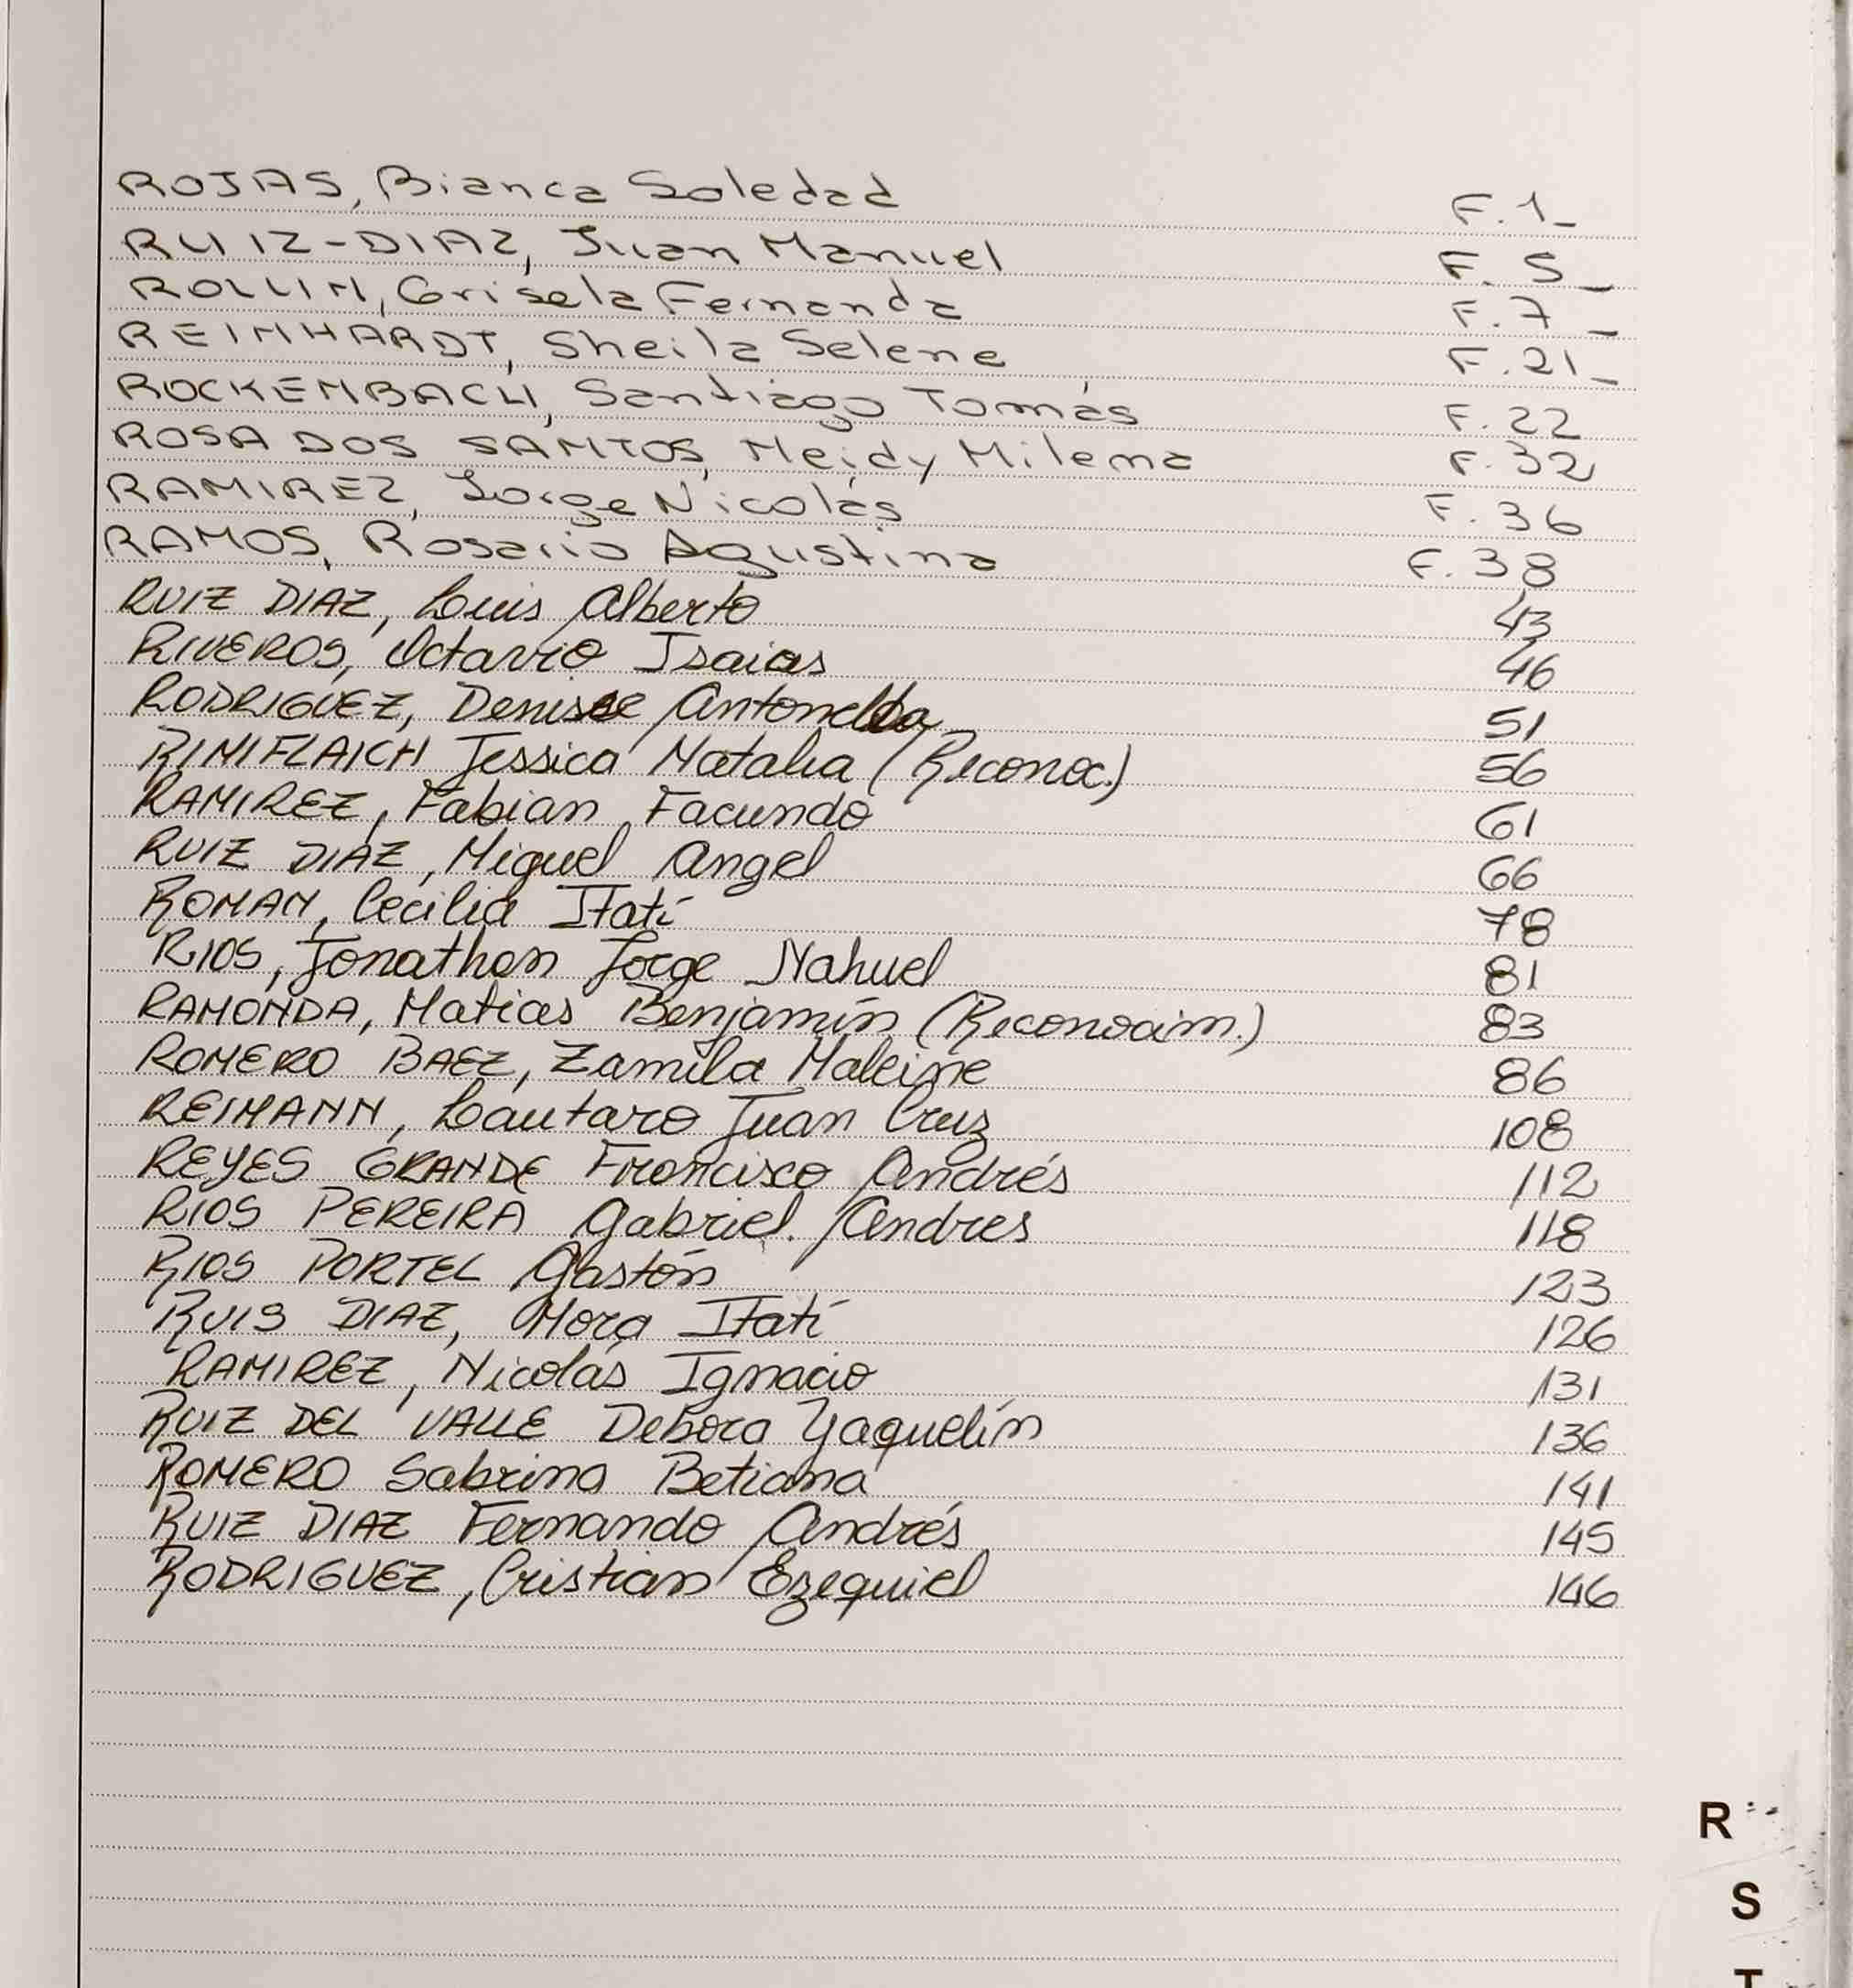 ROJAS, Bianca Soledad F. 1_
RUIZ-DIAZ, Juan Manuel F. 5_
ROLLIN, Grisela Fernanda F. 7_
REINHARDT, Sheila Selene F. 21_
ROCKENBACH, Santiago Tomás F. 22
ROSA DOS SANTOS, Neidy Milema F. 32
RAMIREZ, Jorge Nicolás F. 36
RAMOS, Rosario Agustina F. 38
RUIZ DIAZ, Luis Alberto 43
RIVEROS, Octavio Isaias 46
RODRIGUEZ, Denise Antonella 51
RINIFLAICH Jessica Natalia (Reconoc.) 56
RAMIREZ, Fabian Facundo 61
RUIZ DIAZ, Miguel Angel 66
ROMAN, Cecilia Itatí 78
RIOS, Jonathan Jorge Nahuel 81
RAMONDA, Matias Benjamín (Reconocim.) 83
ROMERO BAEZ, Zamila Maleine 86
REIMANN, Lautaro Juan Cruz 108
REYES GRANDE Francisco Andrés 112
RIOS PEREIRA Gabriel. Andres 118
RIOS PORTEL Gastón 123
RUIS DIAZ, Mora Itatí 126
RAMIREZ, Nicolás Ignacio 131
RUIZ DEL VALLE Debora Yaquelín 136
ROMERO Sabrina Betiana 141
RUIZ DIAZ Fernando Andrés 145
RODRIGUEZ, Cristian Ezequiel 146
R
S
T